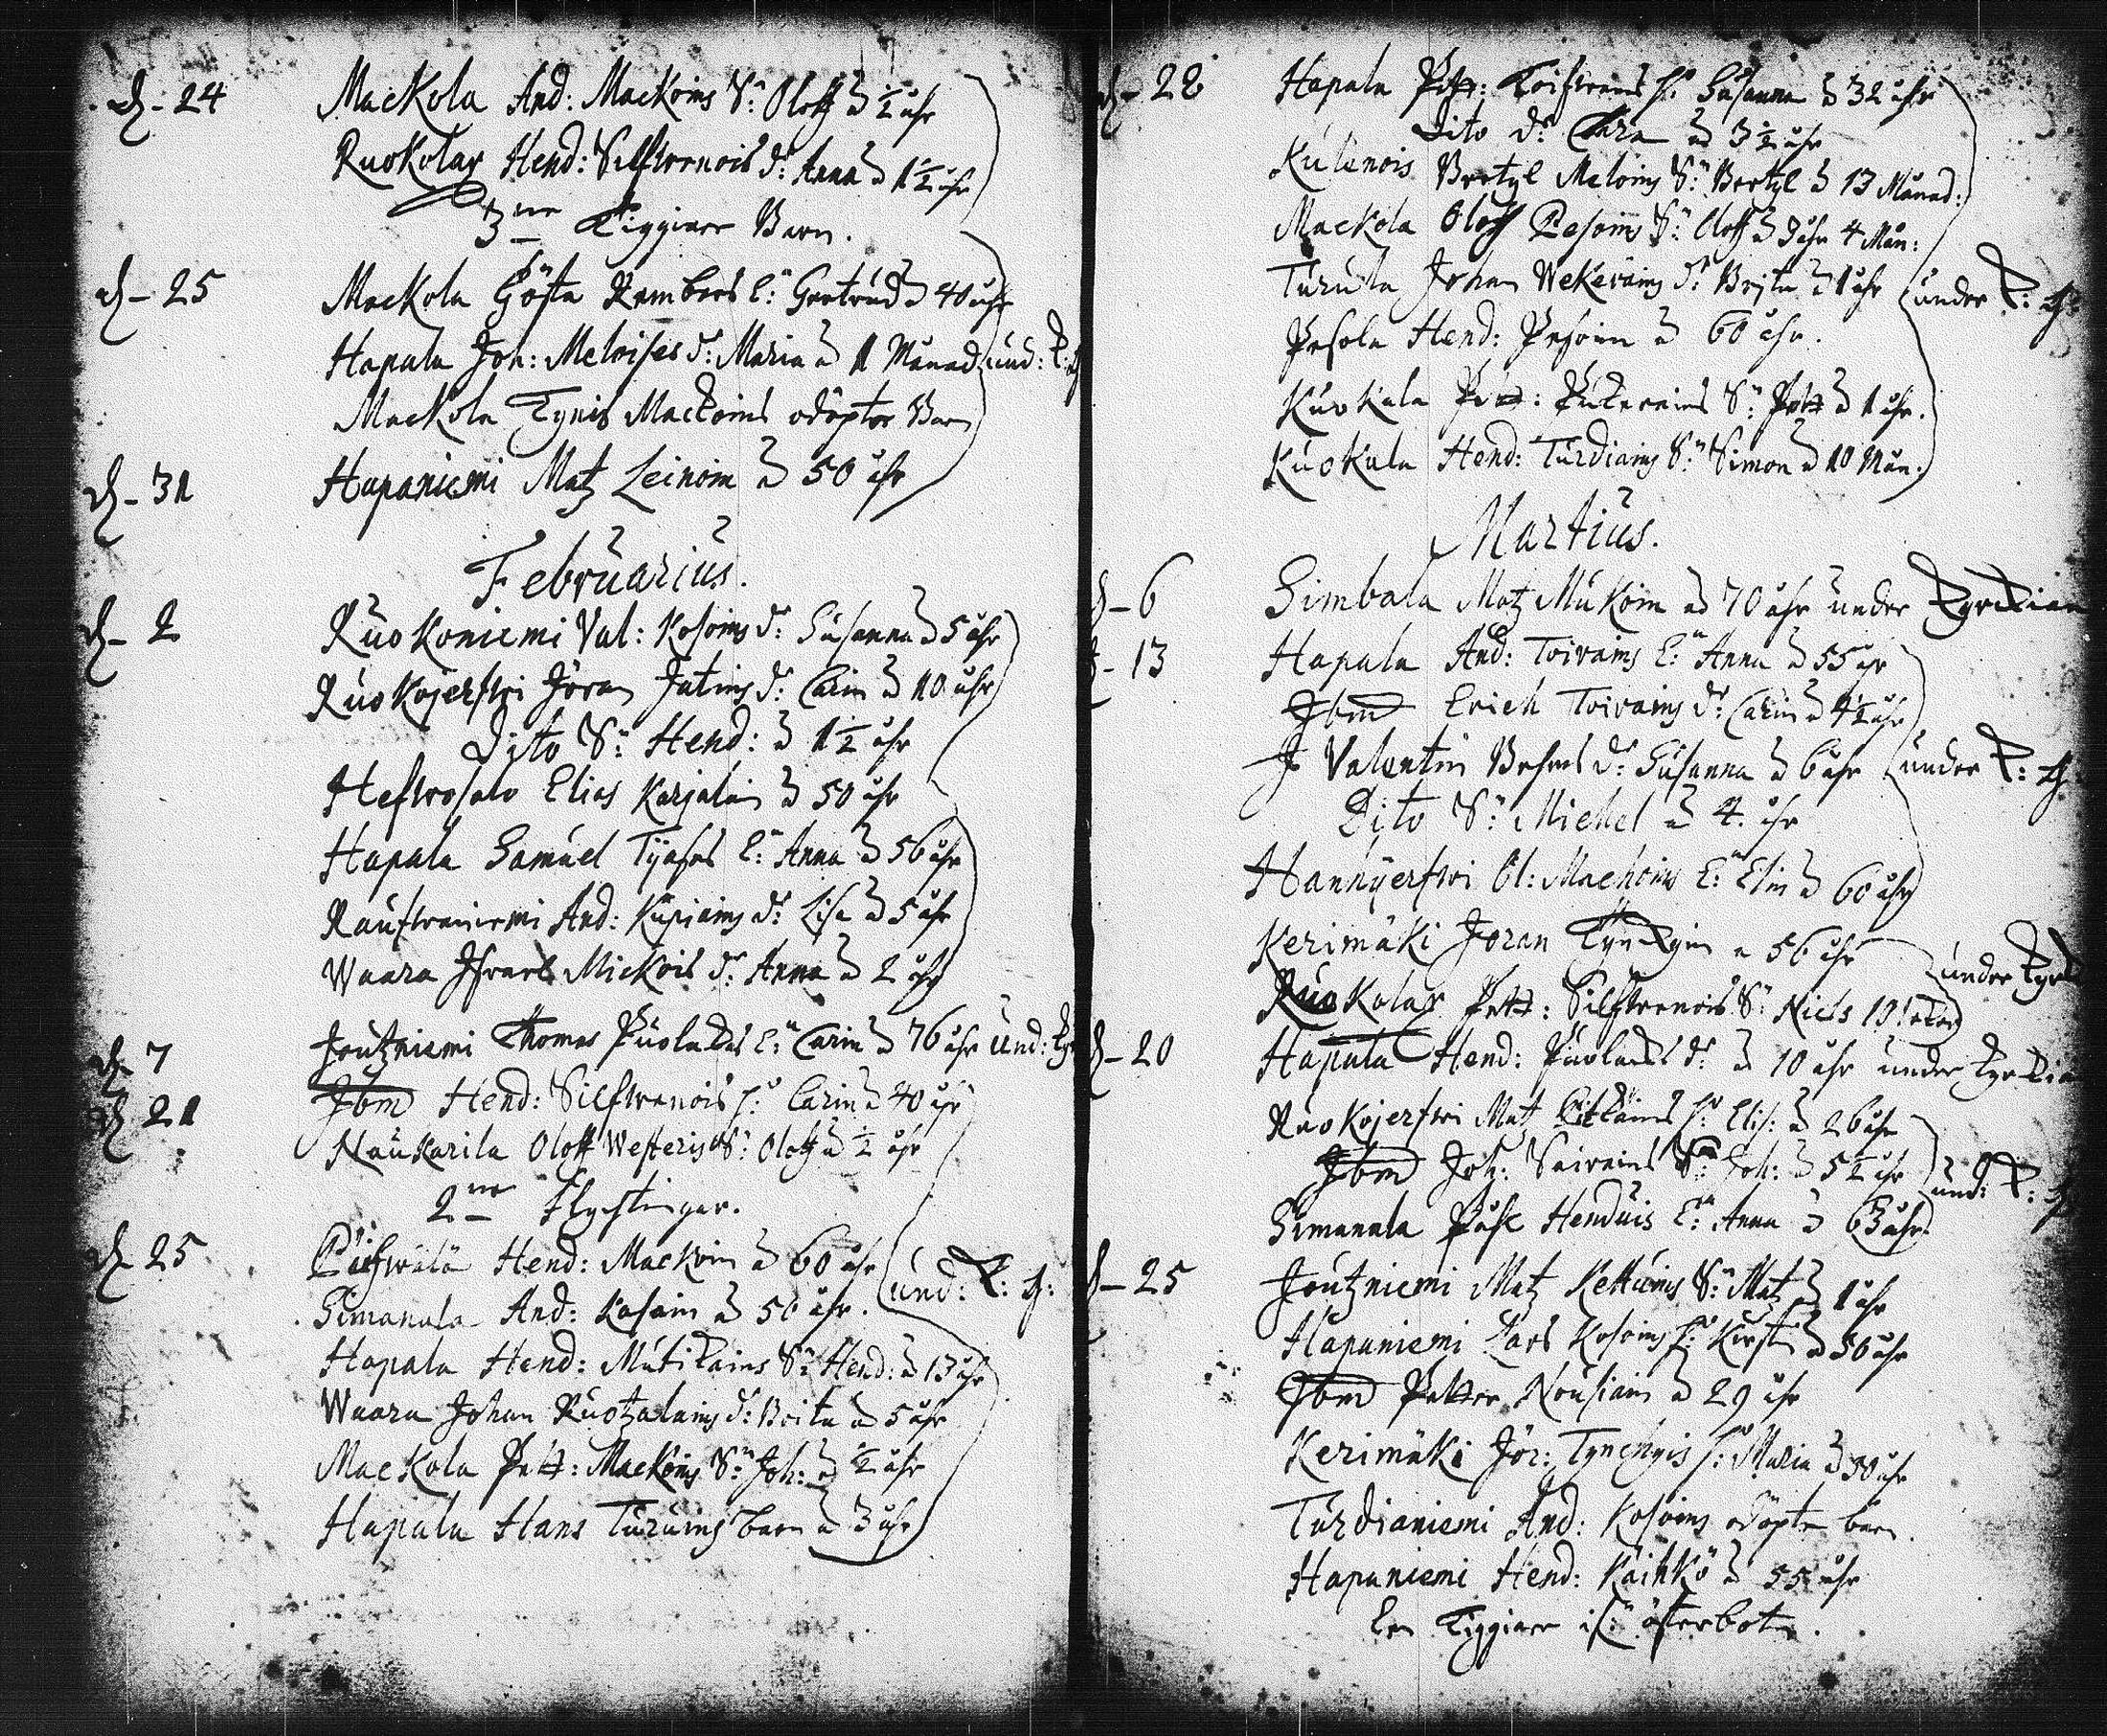 d. 24 Mackola And: Mackoins S:n Oloff a ½ åhr
Ruokolax Hend: Silfwenois d:r Anna a 1½ åhr
3ne Tiggiare Barn.
d. 25 Mackola Gösta Rembers E: Gertrud a 40 åhr
Hapala Joh: Meloises d:r Maria a 1 Månad und: K:
Mackola Tynis Mackoins odöpter Barn
d. 31 Hapaniemi Matz Leinoin a 50 åhr
Februarius.
d. 2 Ruokoniemi Val: Kosoins d:r Susanna a 5 åhr
Ruokojerfwi Jöran Jatins d:r Carin a 10 åhr
Dito S:n Hend: a 1½ åhr
Hefwosalo Elias Karjalain a 50 åhr
Hapala Samuel E: Anna a 56 åhr
Raufwaniemi And: Kupiains d:r Lisa a 5 åhr
Waara Israel Mickois d:r Anna a 2 åhr
d. 7 Joutzniemi Thomas E: Carin a 76 åhr und:
d. 21 Ibm Hend: Silfwenois h: Carin a 40 åhr
Naukarila Oloff Westeris S:n Oloff a ½ åhr
2ne Flychtingar.
d. 25 Hend: Mackoin a 60 åhr
Simanala And: Kosoin a 50 åhr. und: K:
Hapala Hend: Mutikains S:n Hend: a 13 åhr
Waara Johan Ruotzalains d: Brita a 5 åhr
Mackola Pett: Mackoins S:n Joh: a ½ åhr
Hapala Hans Turuins barn a 3 åhr
d. 28 Hapala Pett: Toifwains h: Susanna a 32 åhr
Dito d:r Clara a 3½ åhr
Kulenois Bertyl Meloins S:n Bertyl a 13 Månad:
Mackola Oloff Pesoins S:n Oloff a åhr 4 Mån:
Turula Johan Wekeväins d:r Brita a 1 åhr under K:
Pesola Hend: Pesoin a 60 åhr.
Kuokala Pett: S:n Pett a 1 åhr.
Kuokala Hend: Turdiains S:n Simon a 10 Mån.
Martius.
d. 6 Simbala Matz Mukoin a 70 åhr under Kyrckian
d. 13 Hapala And: Toivains E: Anna a 55 åhr
Ibm Erich Toivains d:r Carin a 4½ åhr
Valentin d:r Susanna a 6 åhr under K:
Dito S:n Michel a 4. åhr
Hannijerfwi Ol: Machoins E: Elin a 60 åhr
Kerimäki Joran a 56 åhr under
Ruokolax Pett: Silfwenois S:n Niels
d. 20 Hapala Hend: d:r a 10 åhr under Kyrckian
Ruokojerfwi Mat h: Elis: a 26 åhr
Ibm Joh: Sairains S:n Joh: a 5½ åhr und: K:
Simanala Påhl E: Anna a 63 åhr
d. 25 Joutzniemi Matz Kettuins S:n Matz a 1 åhr
Hapaniemi Lars Kosoins h: Kirsti a 56 åhr
Ibm Petter Nousiain a 29 åhr
Kerimäki Jör: h: Maria a 50 åhr
Turdianiemi And: Kosoins odöpte barn.
Hapaniemi Hend: Käihkö a 55 åhr
En Tiggiare österbotn.